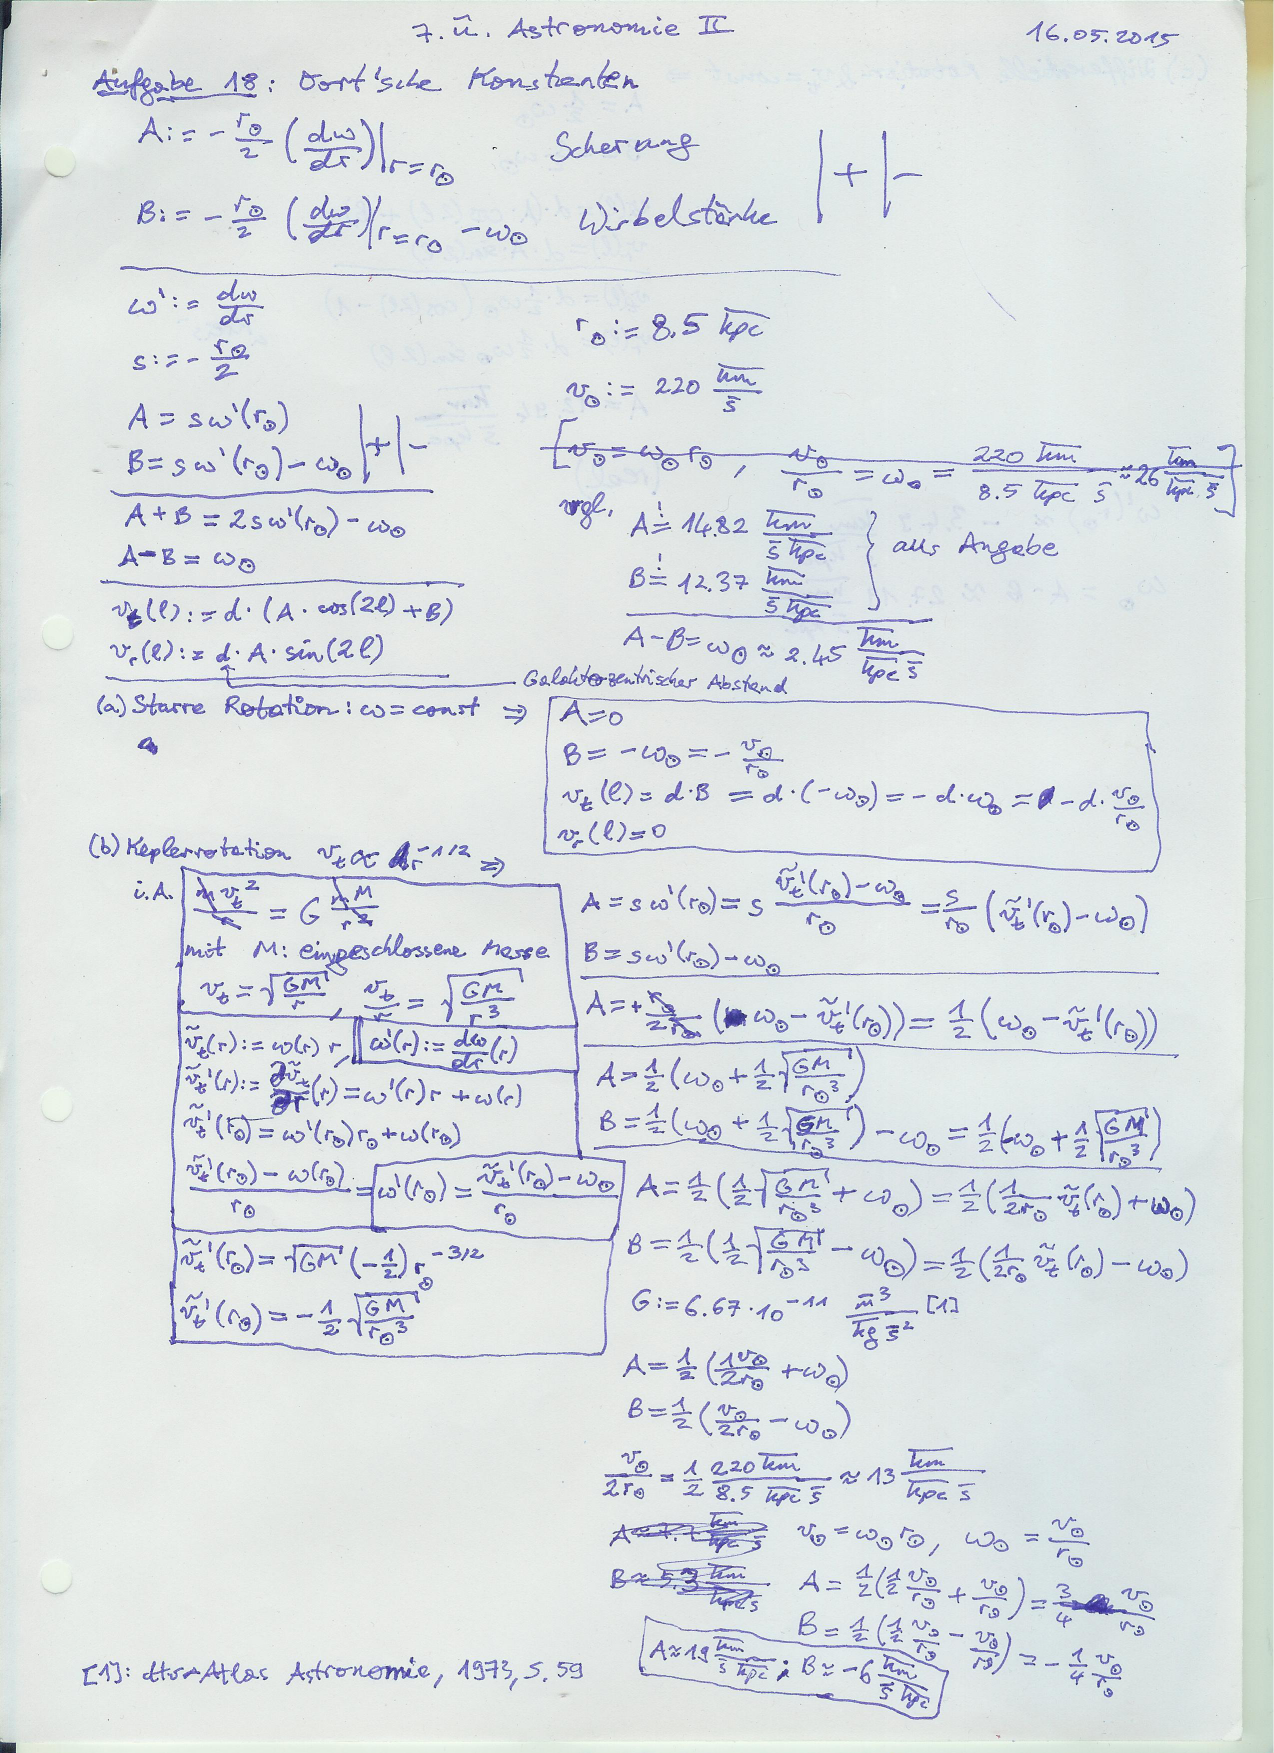 7. Ü. Astronomie II
16.05.2015
Aufgabe 18: Oort'sche Konstanten
A := - r⊙/2 (dω/dr)|r=r⊙ Scherung |+|-
B := - r⊙/2 (dω/dr)|r=r⊙ - ω⊙ Wirbelstärke
ω' := dω/dr
s := - r⊙/2
A = sω'(r⊙)
B = sω'(r⊙) - ω⊙ |+|-
A + B = 2sω'(r⊙) - ω⊙
A - B = ω⊙
v_t(l) := d · (A · cos(2l) + B)
v_r(l) := d · A · sin(2l)
r⊙ := 8.5 kpc
v⊙ := 220 km/s
[v⊙ = ω⊙ r⊙, v⊙/r⊙ = ω⊙ = 220 km / 8.5 kpc s ≈ 26 km/kpc s]
vgl. A != 14.82 km/s kpc
B != 12.37 km/s kpc } aus Angabe
A - B = ω⊙ ≈ 2.45 km/kpc s
Galaktozentrischer Abstand
(a) Starre Rotation: ω = const ⇒
A = 0
B = -ω⊙ = - v⊙/r⊙
v_t(l) = d · B = d · (-ω⊙) = - d · ω⊙ = - d · v⊙/r⊙
v_r(l) = 0
(b) Keplerrotation v_t ∝ r^-1/2 ⇒
i.A. m v_t²/r = G m M/r²
mit M: eingeschlossene Masse
v_t = √(GM/r), v_t/r = √(GM/r³)
ṽ_t(r) := ω(r) r, ω'(r) := dω/dr (r)
ṽ_t'(r) := dṽ_t/dr (r) = ω'(r) r + ω(r)
ṽ_t'(r⊙) = ω'(r⊙) r⊙ + ω(r⊙)
(ṽ_t'(r⊙) - ω(r⊙))/r⊙ = ω'(r⊙) = (ṽ_t'(r⊙) - ω⊙)/r⊙
ṽ_t'(r⊙) = √GM (-1/2) r⊙^-3/2
ṽ_t'(r⊙) = - 1/2 √(GM/r⊙³)
A = sω'(r⊙) = s (ṽ_t'(r⊙) - ω⊙)/r⊙ = s/r⊙ (ṽ_t'(r⊙) - ω⊙)
B = sω'(r⊙) - ω⊙
A = + r⊙/2r⊙ (ω⊙ - ṽ_t'(r⊙)) = 1/2 (ω⊙ - ṽ_t'(r⊙))
A = 1/2 (ω⊙ + 1/2 √(GM/r⊙³))
B = 1/2 (ω⊙ + 1/2 √(GM/r⊙³)) - ω⊙ = 1/2 (-ω⊙ + 1/2 √(GM/r⊙³))
A = 1/2 (1/2 √(GM/r⊙³) + ω⊙) = 1/2 (1/2r⊙ ṽ_t(r⊙) + ω⊙)
B = 1/2 (1/2 √(GM/r⊙³) - ω⊙) = 1/2 (1/2r⊙ ṽ_t(r⊙) - ω⊙)
G := 6.67 · 10^-11 m³/kg s² [1]
A = 1/2 (1v⊙/2r⊙ + ω⊙)
B = 1/2 (v⊙/2r⊙ - ω⊙)
v⊙/2r⊙ = 1/2 220 km / 8.5 kpc s ≈ 13 km/kpc s
A ≈ 7.7 km/kpc s v⊙ = ω⊙ r⊙, ω⊙ = v⊙/r⊙
B ≈ 5.3 km/kpc s A = 1/2 (1/2 v⊙/r⊙ + v⊙/r⊙) = 3/4 v⊙/r⊙
B = 1/2 (1/2 v⊙/r⊙ - v⊙/r⊙) = - 1/4 v⊙/r⊙
A ≈ 19 km/s kpc ; B ≈ -6 km/s kpc
[1]: dtv-Atlas Astronomie, 1973, S. 59